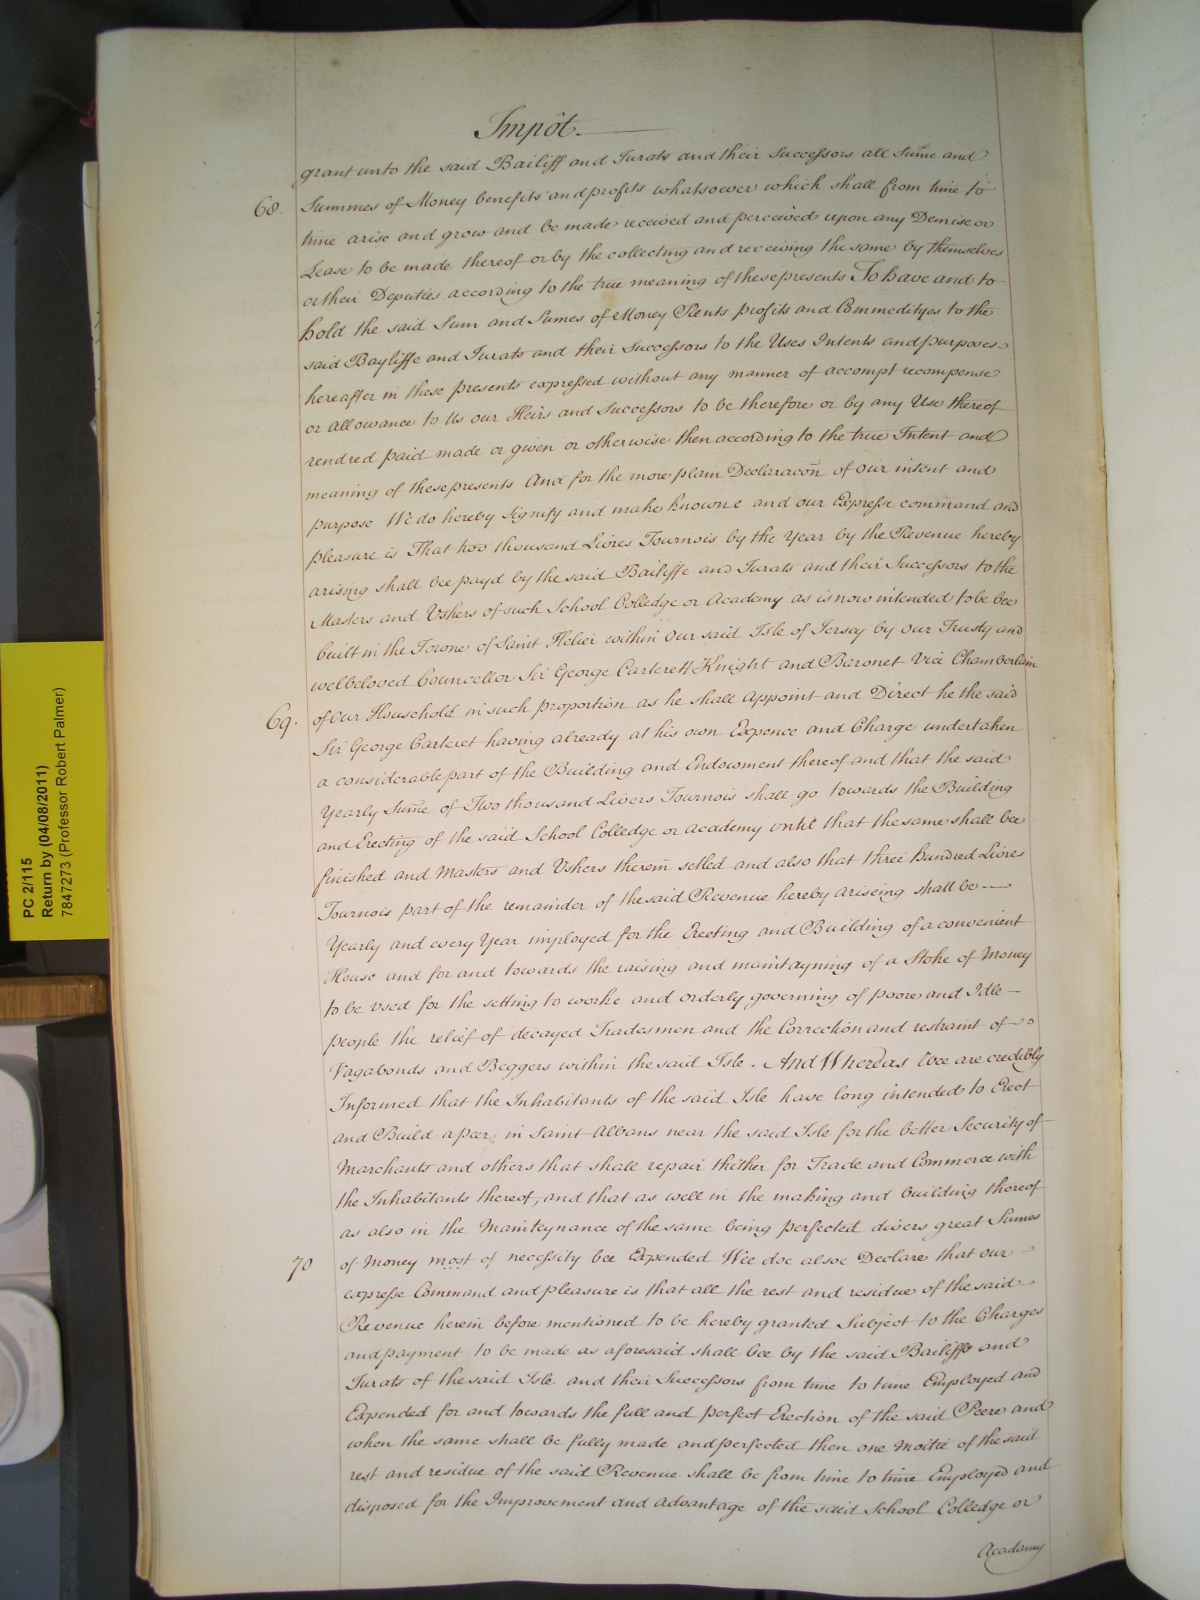 Impôt.
grant unto the said Bailiff and Jurats and their Successors all Sum̄e and
68. Summes of Money benefits and profits whatsoever which shall from time to
time arise and grow and be made received and perceived upon any Demise or
Lease to be made thereof or by the collecting and receiving the same by themselves
or their Deputies according to the true meaning of these presents To have and to
hold the said Sum and Sumes of Money Rents profits and Commedityes to the
said Bayliffe and Jurats and their Successors to the Uses Intents and purposes
hereafter in these presents expressed without any manner of accompt recompense
or allowance to Us our Heirs and Successors to be therefore or by any Use thereof
rendred paid made or given or otherwise then according to the true Intent and
meaning of these presents And for the more plain Declaracōn of our intent and
purpose We do hereby signify and make knowne and our Expresse command and
pleasure is That two thousand Livres Tournois by the Year by the Revenue hereby
arising shall bee payd by the said Bailiffe and Jurats and their Successors to the
Masters and Vshers of such School Colledge or Academy as is now intended to be bee
built in the Towne of Saint Helier within our said Isle of Jersey by our Trusty and
welbeloved Councellor Sir George Carterett Knight and Baronet Vice Chamberlain
69. of our Household in such proportion as he shall appoint and Direct he the said
Sir George Carteret having already at his own Expence and Charge undertaken
a considerable part of the Building and Endowment thereof and that the said
Yearly Sum̄e of Two thousand Livers Tournois shall go towards the Building
and Erecting of the said School Colledge or academy vntil that the same shall bee
finished and Masters and Vshers therein setled and also that three hundred Livres
Tournois part of the remainder of the said Revenue hereby ariseing shall be
Yearly and every Year imployed for the Erecting and Building of a convenient
House and for and towards the raising and maintayning of a Stoke of Money
to be vsed for the setting to worke and orderly governing of poore and Idle
people the relief of decayed Tradesmen and the Correction and restraint of
Vagabonds and Beggers within the said Isle. And Whereas Wee are credibly
Informed that the Inhabitants of the said Isle have long intended to Erect
and Build a peer in Saint Albans near the said Isle for the better Security of
Marchants and others that shall repair thither for Trade and Commerce with
the Inhabitants thereof, and that as well in the making and building thereof
as also in the Mainteynance of the same being perfected divers great Sumes
70 of Money most of necessity bee Expended Wee doe alsoe Declare that our
expresse Command and pleasure is that all the rest and residue of the said
Revenue herein before mentioned to be hereby granted Subject to the Charges
and payment to be made as aforesaid shall bee by the said Bailiffe and
Jurats of the said Isle and their Successors from time to time Employed and
Expended for and towards the full and perfect Erection of the said Peere and
when the same shall be fully made and perfected then one Moitie of the said
rest and residue of the said Revenue shall be from time to time Employed and
disposed for the Improvement and advantage of the said School Colledge or
Academy
PC 2/115
Return by (04/08/2011)
7847273 (Professor Robert Palmer)